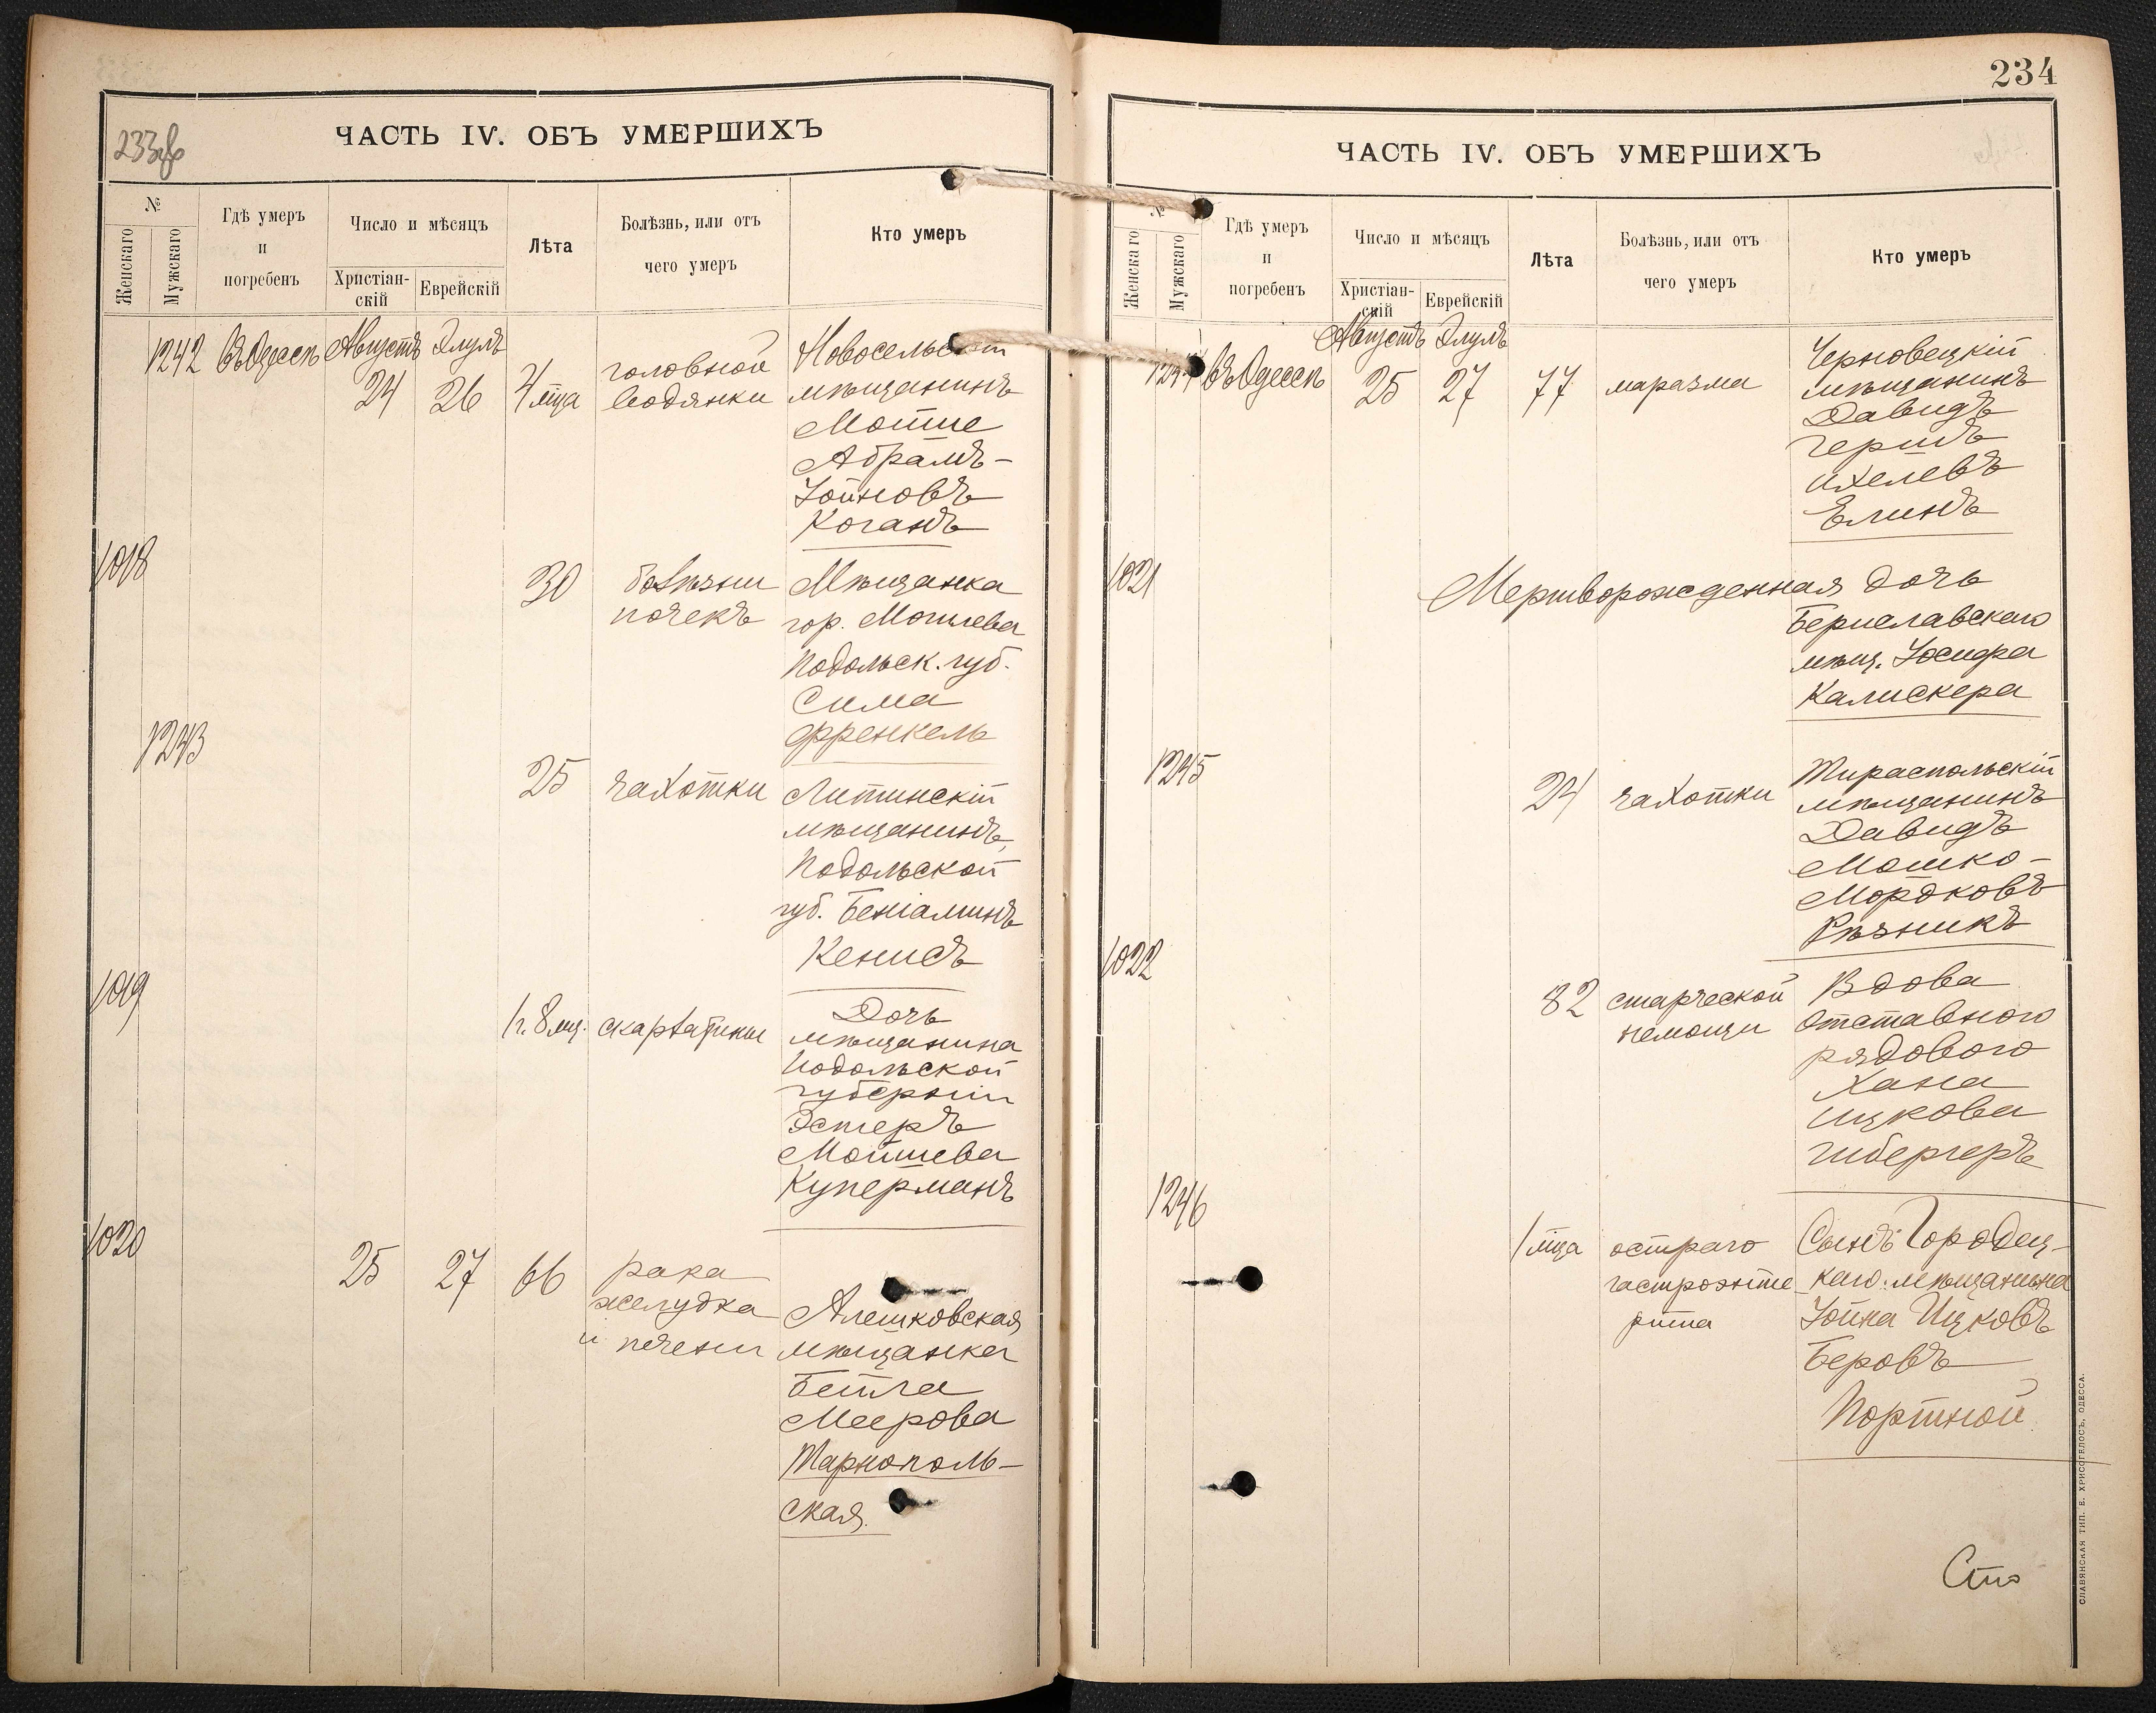 233об
ЧАСТЬ IV. ОБЪ УМЕРШИХЪ
№
Женскаго
Мужскаго
Гдѣ умеръ
и
погребенъ
Число и мѣсяцъ
Христіан-
скій
Еврейскій
Лѣта
Болѣзнь, или отъ
чего умеръ
Кто умеръ
1242 Въ Одессѣ Августъ Элулъ
24 26 4 мца
головной
водянки
Новосельскій
мѣщанинъ
Мотше
Абрамъ-
Іойновъ
Коганъ
1018
30
болѣзни
почекъ
Мѣщанка
гор. Могилева
Подольск. губ.
Сима
Френкель
1243
25 чахотки
Литинскій
мѣщанинъ,
Подольской
губ. Беніаминъ
Кенисъ
1019
1 г. 8 мц. скарлатины
Дочь
мѣщанина
Подольской
губерніи
Эстеръ
Мошиева
Куперманъ
1020
25 27 66
рака
желудка
и печени
Алешковская
мѣщанка
Бейла
Меерова
Тарнополь-
ская
234
ЧАСТЬ IV. ОБЪ УМЕРШИХЪ
№
Женскаго
Мужскаго
Гдѣ умеръ
и
погребенъ
Число и мѣсяцъ
Христіан-
скій
Еврейскій
Лѣта
Болѣзнь, или отъ
чего умеръ
Кто умеръ
1244 Въ Одессѣ Августъ Элулъ
25 27 77 маразма
Черновецкій
мѣщанинъ
Давидъ
Гершъ
Ихелевъ
Елинъ
1021
Мертворожденная дочь
Бериславскаго
мѣщ. Іосифа
Калискера
1245
24 чахотки
Тираспольскій
мѣщанинъ
Давидъ
Мошко-
Мордковъ
Рѣзникъ
1022
82 старческой
немощи
Вдова
отставного
рядового
Хана
Ицкова
Гибергеръ
1246
1 мца
остраго
гастроэнте
рита
Сынъ Городец-
каго мѣщанина
Іойна Ицковъ
Беровъ
Портной
Сто
СЛАВЯНСКАЯ ТИП. Е. ХРИСОГЕЛОСЪ, ОДЕССА.